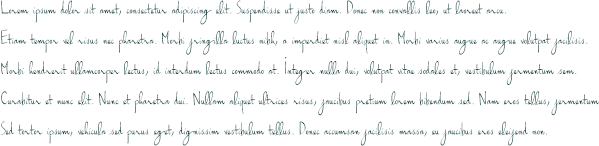 Lorem ipsum dolor sit amet, consectetur adipiscing elit. Suspendisse ut justo diam. Donec non convallis leo, ut laoreet arcu.
Etiam tempor vel risus nec pharetra. Morbi fringilla luctus nibh, a imperdiet nisl aliquet in. Morbi varius augue ac augue volutpat facilisis.
Morbi hendrerit ullamcorper lectus, id interdum lectus commodo at. Integer nulla dui, volutpat vitae sodales et, vestibulum fermentum sem.
Curabitur et nunc elit. Nunc et pharetra dui. Nullam aliquet ultrices risus, faucibus pretium lorem bibendum sed. Nam eros tellus, fermentum
Sed tortor ipsum, vehicula sed purus eget, dignissim vestibulum tellus. Donec accumsan facilisis massa, eu faucibus eros eleifend non.